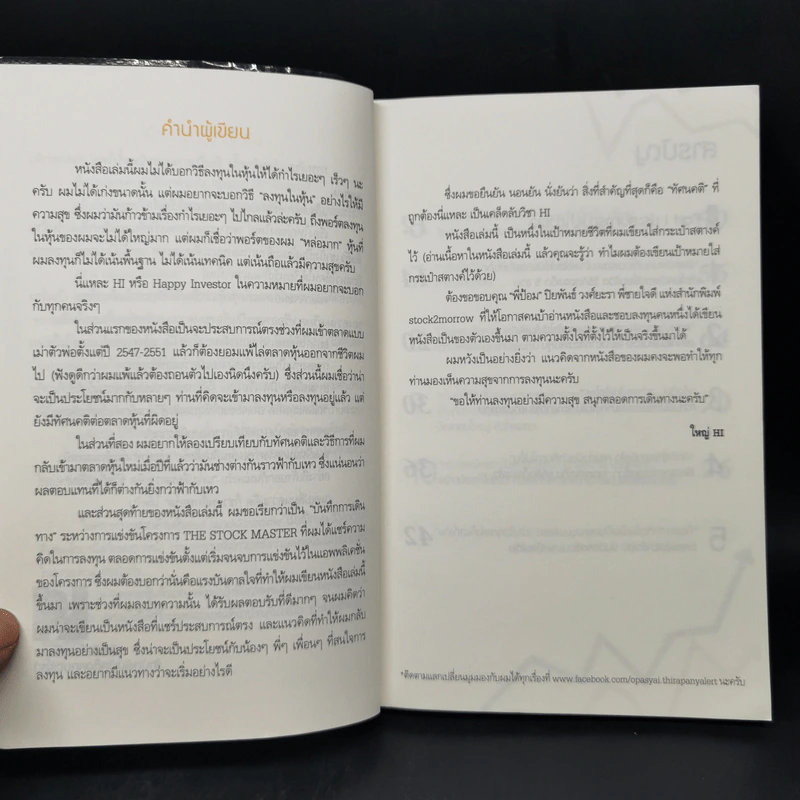 คำนำผู้เขียน
หนังสือเล่มนี้ผมไม่ได้บอกวิธีลงทุนในหุ้นให้ได้กำไรเยอะๆ เร็วๆ นะ
ครับ ผมไม่ได้เก่งขนาดนั้น แต่ผมอยากจะบอกวิธี "ลงทุนในหุ้น" อย่างไรให้มี
ความสุข ซึ่งผมว่ามันก้าวข้ามเรื่องกำไรเยอะๆ ไปไกลแล้วล่ะครับ ถึงพอร์ตลงทุน
ในหุ้นของผมจะไม่ได้ใหญ่มาก แต่ผมก็เชื่อว่าพอร์ตของผม "หล่อมาก" หุ้นที่
ผมลงทุนก็ไม่ได้เน้นพื้นฐาน ไม่ได้เน้นเทคนิค แต่เน้นถือแล้วมีความสุขครับ
นี่แหละ HI หรือ Happy Investor ในความหมายที่ผมอยากจะบอก
กับทุกคนจริงๆ
ในส่วนแรกของหนังสือเป็นจะประสบการณ์ตรงช่วงที่ผมเข้าตลาดแบบ
เม่าตัวพ่อตั้งแต่ปี 2547-2551 แล้วก็ต้องยอมแพ้ไล่ตลาดหุ้นออกจากชีวิตผม
ไป (ฟังดูดีกว่าผมแพ้แล้วต้องถอนตัวไปเองนิดนึงครับ) ซึ่งส่วนนี้ผมเชื่อว่าน่า
จะเป็นประโยชน์มากกับหลายๆ ท่านที่คิดจะเข้ามาลงทุนหรือลงทุนอยู่แล้ว แต่
ยังมีทัศนคติต่อตลาดหุ้นที่ผิดอยู่
ในส่วนที่สอง ผมอยากให้ลองเปรียบเทียบกับทัศนคติและวิธีการที่ผม
กลับเข้ามาตลาดหุ้นใหม่เมื่อปีที่แล้วว่ามันช่างต่างกันราวฟ้ากับเหว ซึ่งแน่นอนว่า
ผลตอบแทนที่ได้ก็ต่างกันยิ่งกว่าฟ้ากับเหว
และส่วนสุดท้ายของหนังสือเล่มนี้ ผมขอเรียกว่าเป็น "บันทึกการเดิน
ทาง" ระหว่างการแข่งขันโครงการ THE STOCK MASTER ที่ผมได้แชร์ความ
คิดในการลงทุน ตลอดการแข่งขันตั้งแต่เริ่มจนจบการแข่งขันไว้ในแอพพลิเคชั่น
ของโครงการ ซึ่งผมต้องบอกว่านั่นคือแรงบันดาลใจที่ทำให้ผมเขียนหนังสือเล่มนี้
ขึ้นมา เพราะช่วงที่ผมลงบทความนั้น ได้รับผลตอบรับที่ดีมากๆ จนผมคิดว่า
ผมน่าจะเขียนเป็นหนังสือที่แชร์ประสบการณ์ตรง และแนวคิดที่ทำให้ผมกลับ
มาลงทุนอย่างเป็นสุข ซึ่งน่าจะเป็นประโยชน์กับน้องๆ พี่ๆ เพื่อนๆ ที่สนใจการ
ลงทุน และอยากมีแนวทางว่าจะเริ่มอย่างไรดี
ซึ่งผมขอยืนยัน นอนยัน นั่งยันว่า สิ่งที่สำคัญที่สุดก็คือ "ทัศนคติ" ที่
ถูกต้องนี่แหละ เป็นเคล็ดลับวิชา HI
หนังสือเล่มนี้ เป็นหนึ่งในเป้าหมายชีวิตที่ผมเขียนใส่กระเป๋าสตางค์
ไว้ (อ่านเนื้อหาในหนังสือเล่มนี้ แล้วคุณจะรู้ว่า ทำไมผมต้องเขียนเป้าหมายใส่
กระเป๋าสตางค์ไว้ด้วย)
ต้องขอขอบคุณ "พี่ป้อม" ปิยพันธ์ วงศ์ยะรา พี่ชายใจดี แห่งสำนักพิมพ์
stock2morrow ที่ให้โอกาสคนบ้าอ่านหนังสือและชอบลงทุนคนหนึ่งได้เขียน
หนังสือเป็นของตัวเองขึ้นมา ตามความตั้งใจที่ตั้งไว้ให้เป็นจริงขึ้นมาได้
ผมหวังเป็นอย่างยิ่งว่า แนวคิดจากหนังสือของผมคงจะพอทำให้ทุก
ท่านมองเห็นความสุขจากการลงทุนนะครับ
"ขอให้ท่านลงทุนอย่างมีความสุข สนุกตลอดการเดินทางนะครับ"
ใหญ่ HI
*ติดตามแลกเปลี่ยนมุมมองกับผมได้ทุกเรื่องที่ www.facebook.com/opasyai.thirapanyalert นะครับ